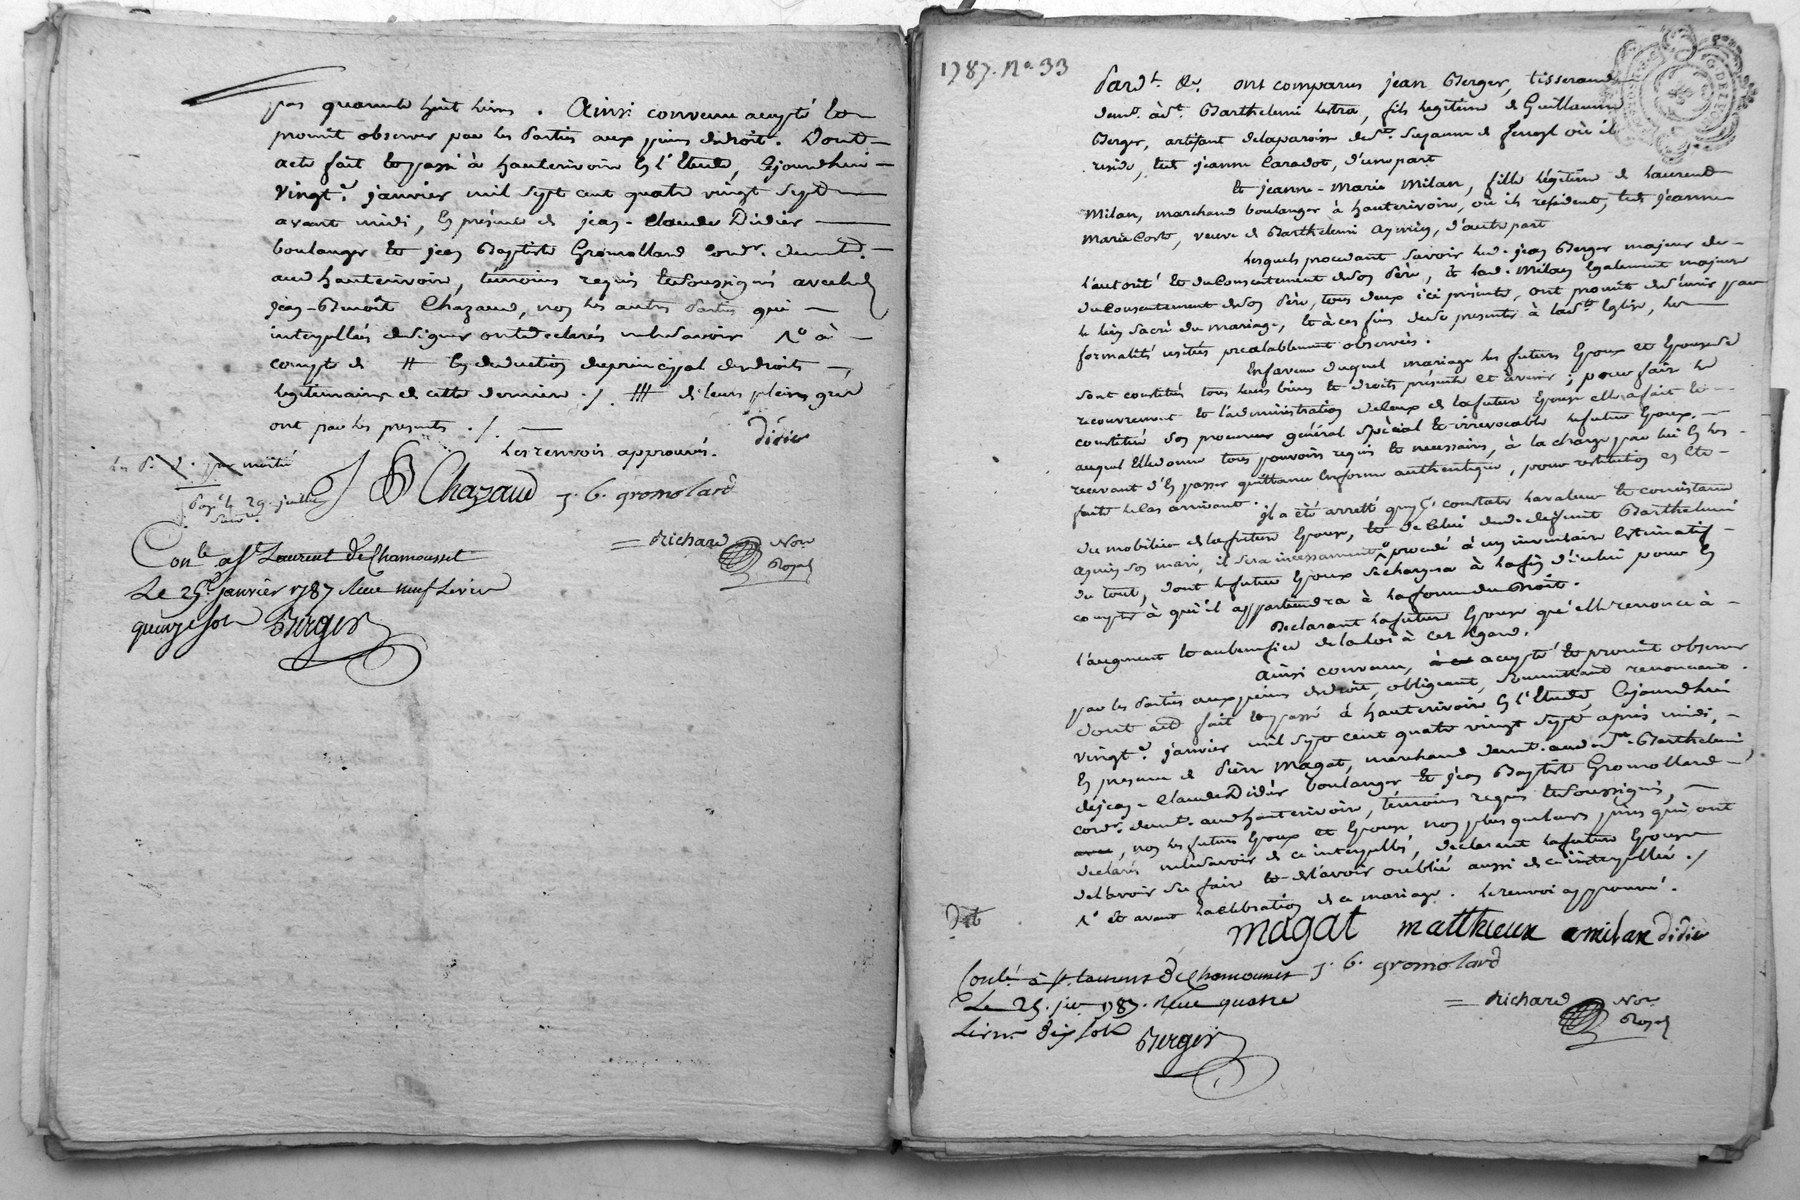 pas quarante huit livres. Ainsi convenu accepté et
promit observer par les Parties aux peines de droit. Dont
acte fait et passé à hauterivoire En l'Etude, Cejourdhui
vingt.e janvier mil sept cent quatre vingt sept
avant midi, En présence de jean-Claude Didier
boulanger et jean Baptiste Gromolland cord.r demt.
aud hauterivoire, témoins requis et soussignés avec led
jean-Benoît Chazaud, non les autres Parties qui
interpellées de signer ont declarés ne le savoir à
compte de # En deduction du principal des droits
legitimaires de cette derniere ./. ## de leurs pleins gré
ont par les presents ./.
Les renvois approuvés.
didier
Chazaud J. B. gromolard
Payé le 29. juillet
= Richard Not.re
Royal
Con.lé a St Laurent De Chamousset
Le 25 Janvier 1787 Reçu neuf Livres
quinze sols Berger
1787. N.o 33
Pard.t &c. ont comparus jean Berger, tisserand
dem.t à St. Barthelemi Lestra, fils legitime de Guillaume
Berger, artisant de la paroisse de Ste. Suzanne de
reside, et jeanne Caradot, d'une part
et jeanne-Marie Milan, fille légitime de Laurent
Milan, marchand boulanger à hauterivoire, où ils résident, et de jeanne
Marie Coste, veuve de Barthelemi Aguiry, d'autre part
Lesquels procedant Savoir led. jean Berger majeur de
l'autorité et du Consentement de son Père, et lad. Milan Egalement majeure
du Consentement de son Père, tous deux ici présents, ont promit de s'unir par
le lien sacré du mariage, et à ces fins de se presenter à la Ste Eglise, les
formalités usitées prealablement observées.
En faveur duquel mariage les futurs Epoux et Epouse se
sont constitués tous leurs biens et droits présents et avenir; pour faire le
recouvrement et l'administration de ceux de la future Epouse elle a fait et
constitué son procureur général spécial et irrevocable le futur Epoux,
auquel Elle donne tous pouvoirs requis et necessaires, à la charge par lui En les
recevant d'En passer quittance En forme authentique, pour restitution en etre
faite le cas arrivant.
il a été arretté que pour constater la valeur et consistance
du mobilier de la future Epouse, et de celui dud. defunt Barthelemi
Aguiry son mari, il sera incessamment procedé à un inventaire Estimatif
du tout, dont le futur Epoux se chargera à la fin d'icelui pour En
compter à qui il appartiendra à la forme du Droit.
Declarant la future Epouse qu'elle renonce à
l'augment et au benefice de la loi à cet Egard.
Ainsi convenu, accepté et promit observer
par les Parties aux peines de droit, obligeant, soumettant renonceant.
Dont acte fait et passé à hauterivoire En l'Etude, Cejourdhui
vingt.e janvier mil sept cent quatre vingt sept après midi,
En presence de Pierre Magat, marchand demt. aud St. Barthelemi
de jean-Claude Didier boulanger et jean Baptiste Gromolland
cord.r demt. aud hauterivoire, témoins requis et soussignés,
avec, non les futurs Epoux et Epouse non plus que leurs pères qui ont
declarés ne le savoir de ce interpellés, declarant la future Epouse
de l'avoir su faire et de l'avoir oublié aussi de ce interpellée ./
et avant la celebration de ce mariage. le renvoi approuvé.
magat matthieux amilan didier
J. B. gromolard
Con.lé à St. Laurent De Chamousset
Le 25. jer. 1787. Reçu quatre
Livres dix sols Berger
= Richard Not.re
Royal